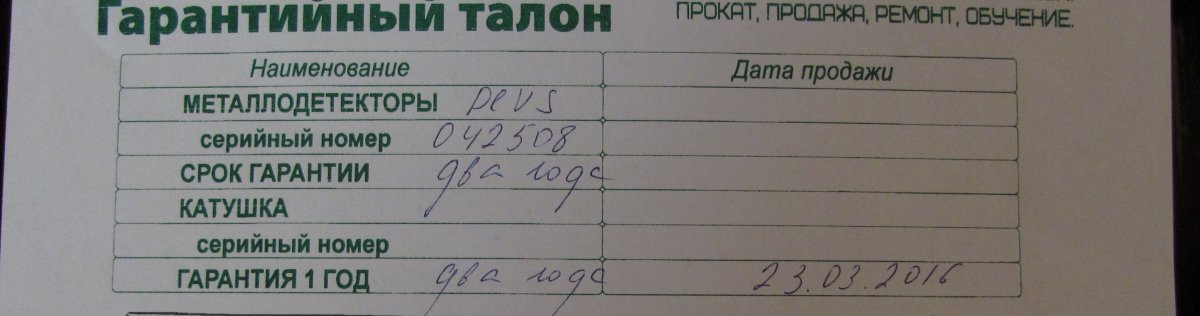 Гарантийный талон
ПРОКАТ, ПРОДАЖА, РЕМОНТ, ОБУЧЕНИЕ.
Наименование Дата продажи
МЕТАЛЛОДЕТЕКТОРЫ Deus
серийный номер 042508
СРОК ГАРАНТИИ два года
КАТУШКА
серийный номер
ГАРАНТИЯ 1 ГОД два года 23.03.2016